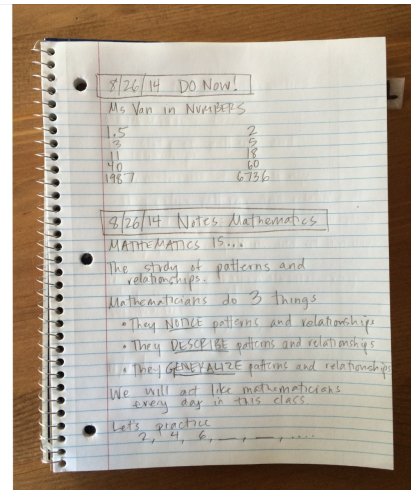 8/26/14 DO Now!
Ms Van in NUMBERS
1.5 2
3 5
11 18
40 60
1987 6736
8/26/14 Notes: Mathematics
MATHEMATICS IS...
The study of patterns and
relationships.
Mathematicians do 3 things
• They NOTICE patterns and relationships
• They DESCRIBE patterns and relationships
• They GENERALIZE patterns and relationships
We will act like mathematicians
every day in this class
Let's practice
2, 4, 6, __, __, ....